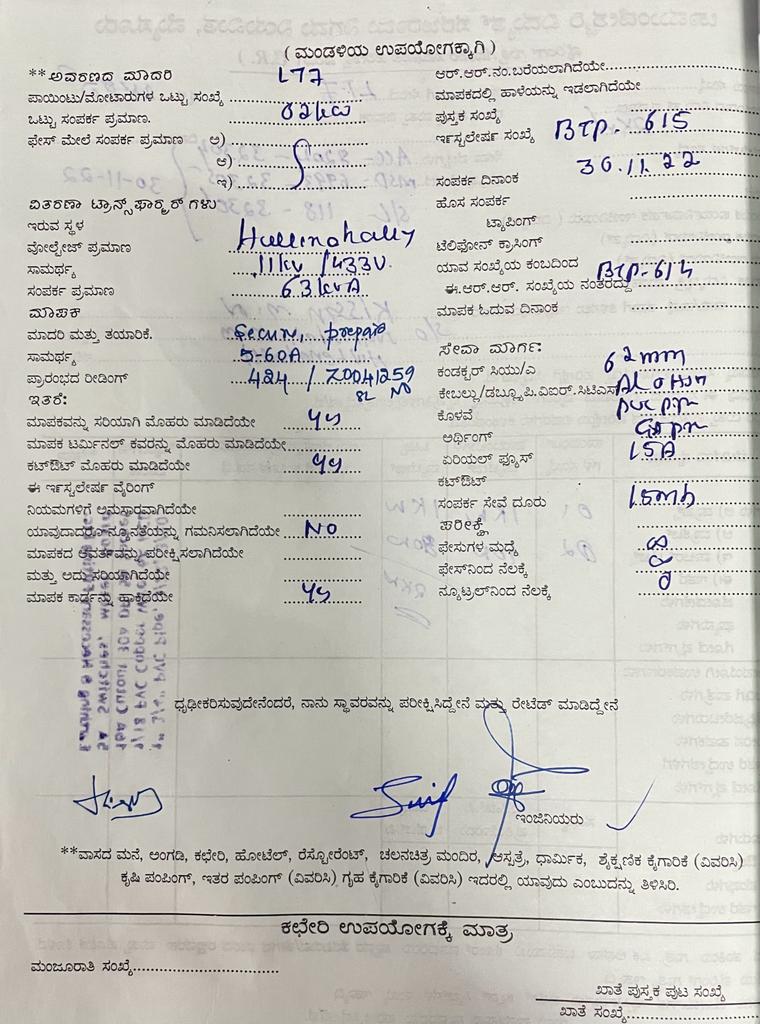 ( ಮಂಡಳಿಯ ಉಪಯೋಗಕ್ಕಾಗಿ )
**ಅವರಣದ ಮಾದರಿ LT7
ಪಾಯಿಂಟು/ಮೋಟಾರುಗಳ ಒಟ್ಟು ಸಂಖ್ಯೆ
ಒಟ್ಟು ಸಂಪರ್ಕ ಪ್ರಮಾಣ. 02kw
ಫೇಸ್ ಮೇಲೆ ಸಂಪರ್ಕ ಪ್ರಮಾಣ ಅ)
ಆ)
ಇ)
ವಿತರಣಾ ಟ್ರಾನ್ಸ್‌ಫಾರ್ಮರ್ ಗಳು
ಇರುವ ಸ್ಥಳ Hullinahally
ವೋಲ್ಟೇಜ್ ಪ್ರಮಾಣ 11kv /433V.
ಸಾಮರ್ಥ್ಯ 63kvA
ಸಂಪರ್ಕ ಪ್ರಮಾಣ
ಮಾಪಕ
ಮಾದರಿ ಮತ್ತು ತಯಾರಿಕೆ.
ಸಾಮರ್ಥ್ಯ 5-60A
ಪ್ರಾರಂಭದ ರೀಡಿಂಗ್ 424 / Z0041259
SL NO
ಇತರೆ:
ಮಾಪಕವನ್ನು ಸರಿಯಾಗಿ ಮೊಹರು ಮಾಡಿದೆಯೇ Yes
ಮಾಪಕ ಟರ್ಮಿನಲ್ ಕವರನ್ನು ಮೊಹರು ಮಾಡಿದೆಯೇ
ಕಟ್‌ಔಟ್ ಮೊಹರು ಮಾಡಿದೆಯೇ Yes
ಈ ಇನ್ಸ್ಟಲೇಷನ್ ವೈರಿಂಗ್
ನಿಯಮಗಳಿಗೆ ಅನುಸಾರವಾಗಿದೆಯೇ
ಯಾವುದಾದರೂ ನ್ಯೂನತೆಯನ್ನು ಗಮನಿಸಲಾಗಿದೆಯೇ NO
ಮಾಪಕದ ಆವರ್ತವನ್ನು ಪರೀಕ್ಷಿಸಲಾಗಿದೆಯೇ
ಮತ್ತು ಅದು ಸರಿಯಾಗಿದೆಯೇ
ಮಾಪಕ ಕಾರ್ಡನ್ನು ಹಾಕಿದೆಯೇ Yes
ಆರ್.ಆರ್.ನಂ.ಬರೆಯಲಾಗಿದೆಯೇ
ಮಾಪಕದಲ್ಲಿ ಹಾಳೆಯನ್ನು ಇಡಲಾಗಿದೆಯೇ
ಪುಸ್ತಕ ಸಂಖ್ಯೆ
ಇನ್ಸ್ಟಲೇಷನ್ ಸಂಖ್ಯೆ BTP. 615
ಸಂಪರ್ಕ ದಿನಾಂಕ 30.11.22
ಹೊಸ ಸಂಪರ್ಕ
ಟ್ಯಾಪಿಂಗ್
ಟೆಲಿಫೋನ್ ಕ್ರಾಸಿಂಗ್
ಯಾವ ಸಂಖ್ಯೆಯ ಕಂಬದಿಂದ BTP-614
ಈ.ಆರ್.ಆರ್. ಸಂಖ್ಯೆಯ ನಂತರದ್ದು
ಮಾಪಕ ಓದುವ ದಿನಾಂಕ
ಸೇವಾ ಮಾರ್ಗ:
ಕಂಡಕ್ಟರ್ ಸಿಯು/ಎ 62mm
ಕೇಬಲ್ಲು/ಡಬ್ಲ್ಯೂ.ಪಿ.ವಿಐಆರ್.ಸಿಟಿಎಸ್
ಕೊಳವೆ
ಅರ್ಥಿಂಗ್
ಏರಿಯಲ್ ಫ್ಯೂಸ್ 15A
ಕಟ್‌ಔಟ್
ಸಂಪರ್ಕ ಸೇವೆ ದೂರು
ಪರೀಕ್ಷೆ
ಫೇಸುಗಳ ಮಧ್ಯೆ
ಫೇಸ್‌ನಿಂದ ನೆಲಕ್ಕೆ
ನ್ಯೂಟ್ರಲ್‌ನಿಂದ ನೆಲಕ್ಕೆ
ಧೃಢೀಕರಿಸುವುದೇನೆಂದರೆ, ನಾನು ಸ್ಥಾವರವನ್ನು ಪರೀಕ್ಷಿಸಿದ್ದೇನೆ ಮತ್ತು ರೇಟೆಡ್ ಮಾಡಿದ್ದೇನೆ
ಇಂಜಿನಿಯರು
**ವಾಸದ ಮನೆ, ಅಂಗಡಿ, ಕಛೇರಿ, ಹೋಟೆಲ್, ರೆಸ್ಟೋರೆಂಟ್, ಚಲನಚಿತ್ರ ಮಂದಿರ, ಆಸ್ಪತ್ರೆ, ಧಾರ್ಮಿಕ, ಶೈಕ್ಷಣಿಕ ಕೈಗಾರಿಕೆ (ವಿವರಿಸಿ)
ಕೃಷಿ ಪಂಪಿಂಗ್, ಇತರ ಪಂಪಿಂಗ್ (ವಿವರಿಸಿ) ಗೃಹ ಕೈಗಾರಿಕೆ (ವಿವರಿಸಿ) ಇದರಲ್ಲಿ ಯಾವುದು ಎಂಬುದನ್ನು ತಿಳಿಸಿರಿ.
ಕಛೇರಿ ಉಪಯೋಗಕ್ಕೆ ಮಾತ್ರ
ಮಂಜೂರಾತಿ ಸಂಖ್ಯೆ
ಖಾತೆ ಪುಸ್ತಕ ಪುಟ ಸಂಖ್ಯೆ
ಖಾತೆ ಸಂಖ್ಯೆ